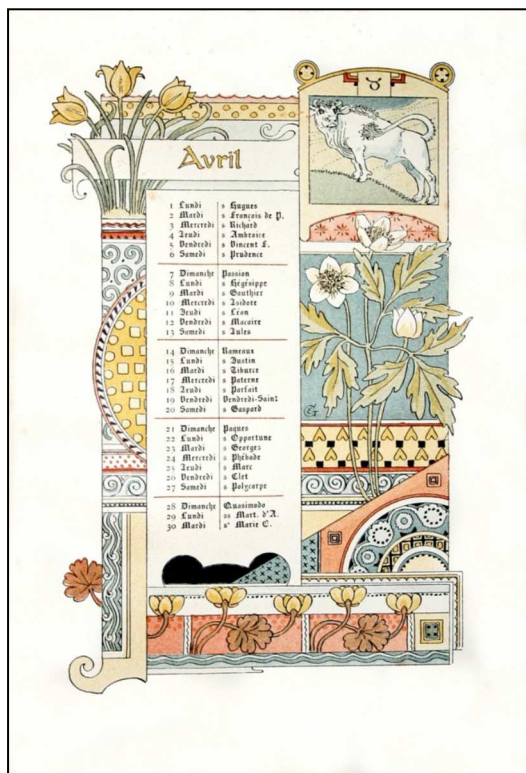 Avril
1 Lundi s Hugues
2 Mardi s François de P.
3 Mercredi s Richard
4 Jeudi s Ambroise
5 Vendredi s Vincent F.
6 Samedi s Prudence
7 Dimanche Passion
8 Lundi s Hégésippe
9 Mardi s Gauthier
10 Mercredi s Isidore
11 Jeudi s Léon
12 Vendredi s Macaire
13 Samedi s Jules
14 Dimanche Rameaux
15 Lundi s Justin
16 Mardi s Tiburce
17 Mercredi s Paterne
18 Jeudi s Parfait
19 Vendredi Vendredi-Saint
20 Samedi s Gaspard
21 Dimanche Paques
22 Lundi s Opportune
23 Mardi s Georges
24 Mercredi s Phébade
25 Jeudi s Marc
26 Vendredi s Clet
27 Samedi s Polycarpe
28 Dimanche Quasimodo
29 Lundi ss Mart. d'A.
30 Mardi sᵉ Marie E.